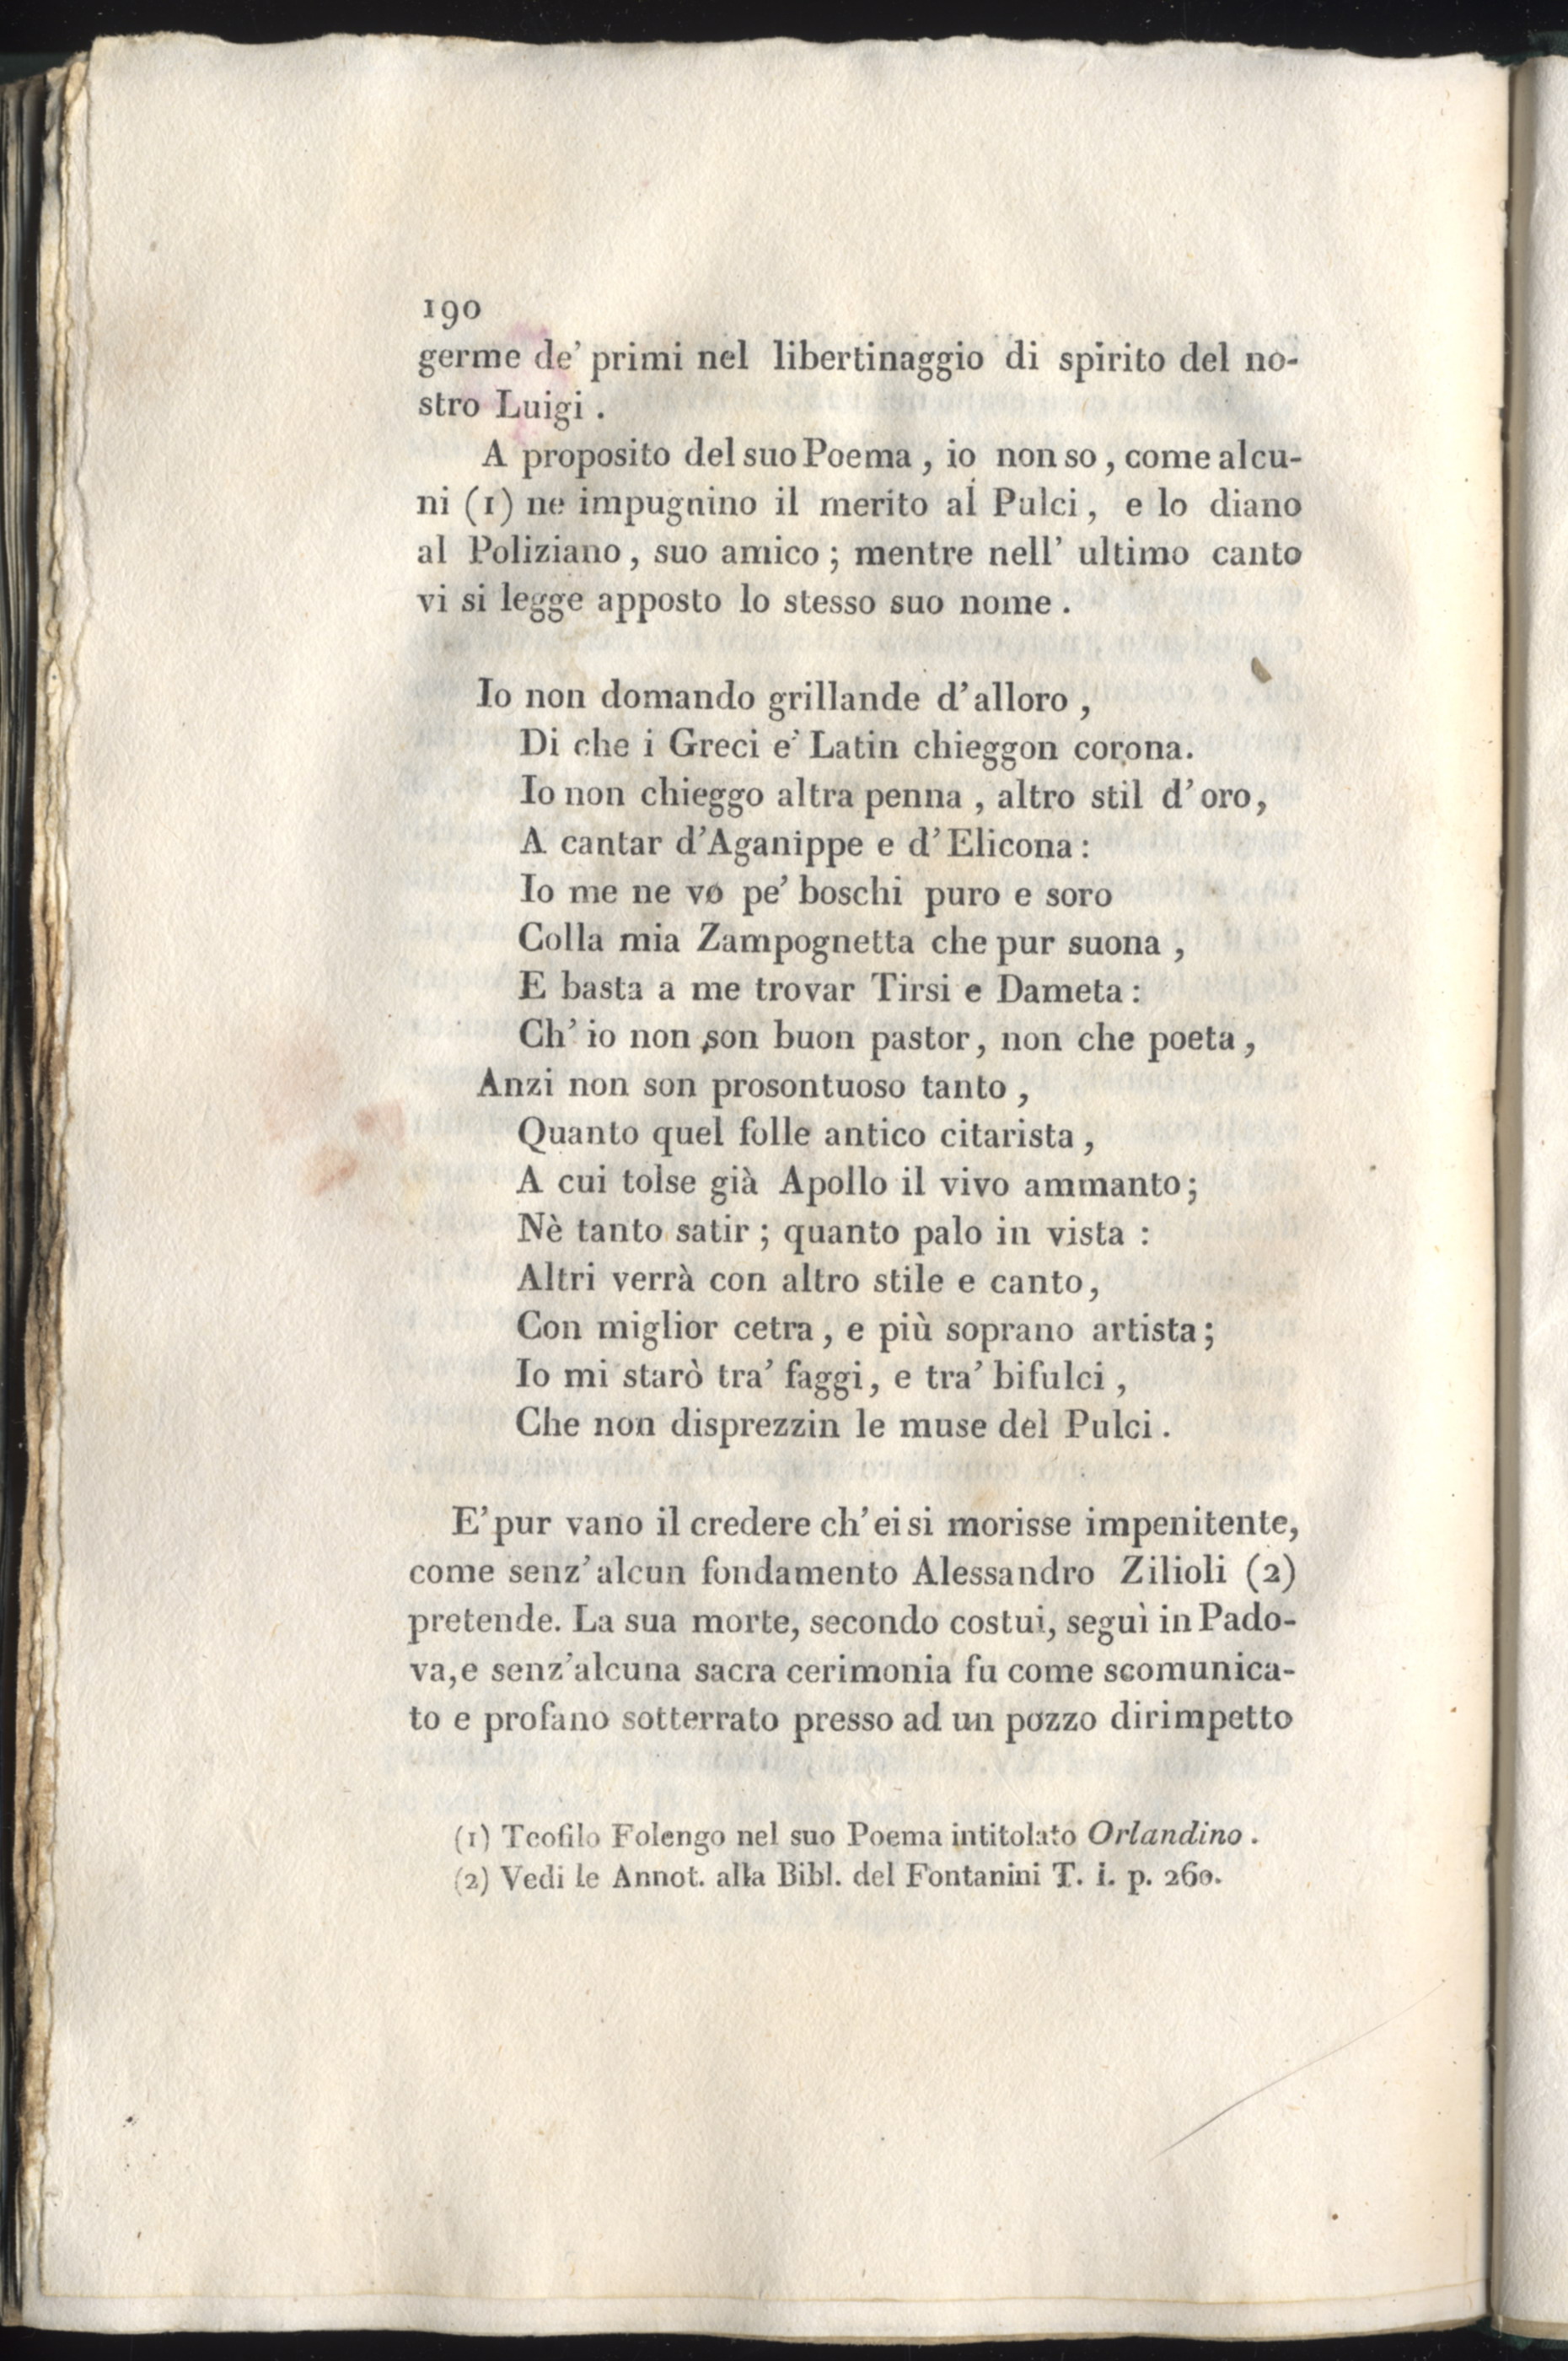 190
germe de' primi nel libertinaggio di spirito del no-
stro Luigi .
A proposito del suo Poema , io non so , come alcu-
ni (1) ne impugnino il merito al Pulci , e lo diano
al Poliziano , suo amico ; mentre nell' ultimo canto
vi si legge apposto lo stesso suo nome .
Io non domando grillande d'alloro ,
Di che i Greci e' Latin chieggon corona.
Io non chieggo altra penna , altro stil d'oro,
A cantar d'Aganippe e d'Elicona :
Io me ne vo pe' boschi puro e soro
Colla mia Zampognetta che pur suona ,
E basta a me trovar Tirsi e Dameta :
Ch' io non son buon pastor, non che poeta ,
Anzi non son prosontuoso tanto ,
Quanto quel folle antico citarista ,
A cui tolse già Apollo il vivo ammanto;
Nè tanto satir ; quanto palo in vista :
Altri verrà con altro stile e canto,
Con miglior cetra , e più soprano artista;
Io mi starò tra' faggi, e tra' bifulci ,
Che non disprezzin le muse del Pulci .
E' pur vano il credere ch'ei si morisse impenitente,
come senz'alcun fondamento Alessandro Zilioli (2)
pretende. La sua morte, secondo costui, seguì in Pado-
va, e senz'alcuna sacra cerimonia fu come scomunica-
to e profano sotterrato presso ad un pozzo dirimpetto
(1) Teofilo Folengo nel suo Poema intitolato Orlandino .
(2) Vedi le Annot. alla Bibl. del Fontanini T. i. p. 260.